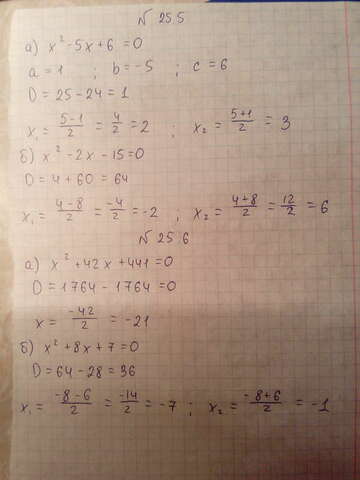 N 255
а) x² -5x +6 =0
a = 1 ; b = -5 ; c = 6
D = 25 - 24 = 1
x₁ = 5-1/2 = 4/2 = 2 ; x₂ = 5+1/2 = 3
б) x² -2x - 15 =0
D = 4 + 60 = 64
x₁ = 4-8/2 = -4/2 = -2 , x₂ = 4+8/2 = 12/2 = 6
N 256
а) x² +42x +441 =0
D = 1764 - 1764 =0
x = -42/2 = -21
б) x² +8x +7 =0
D = 64 - 28 = 36
x₁ = -8-6/2 = -14/2 = -7 ; x₂ = -8+6/2 = -1